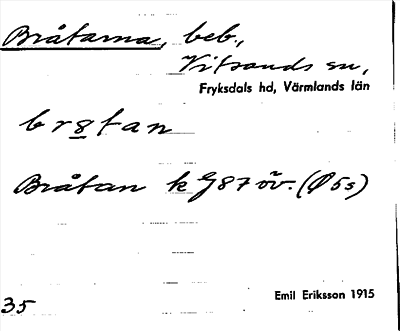 Bråtarna, beb.,
Vitsands sn,
Fryksdals hd, Värmlands län
br8tan
Bråtan k G87 öv. (Ø5s)
Emil Eriksson 1915
35